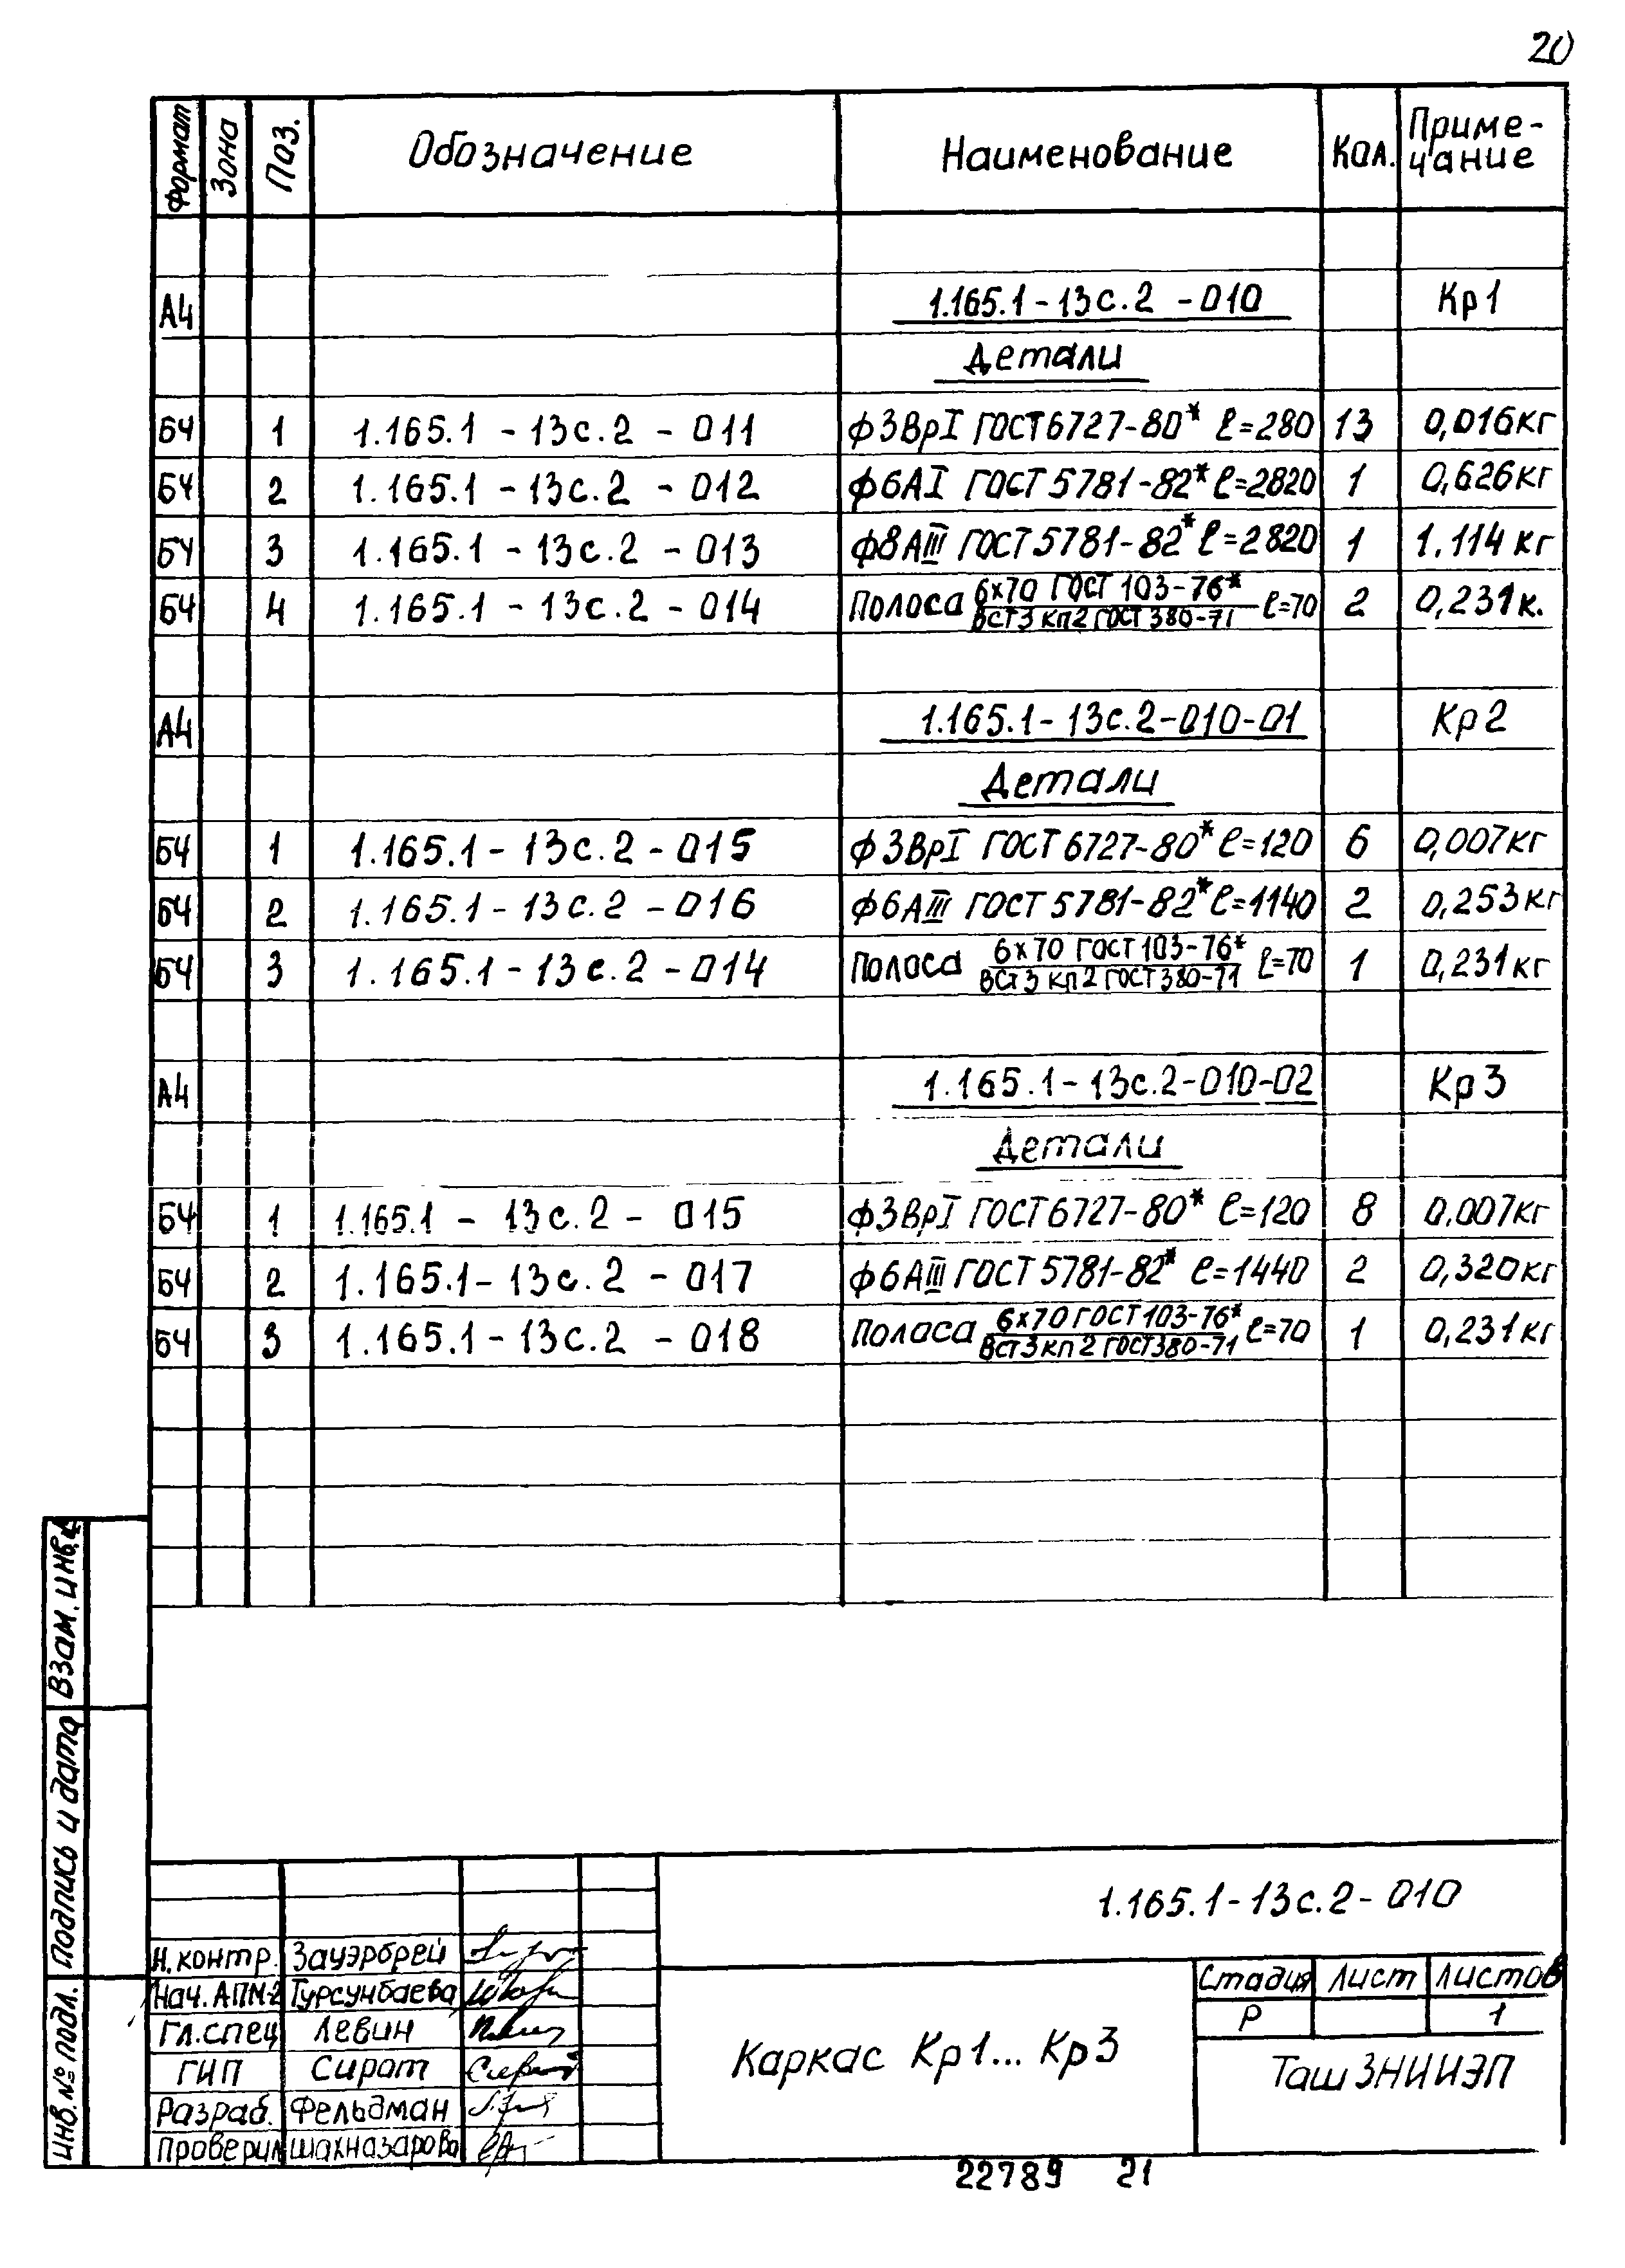 20
Формат Зона Поз. Обозначение Наименование Кол. Приме-
чание
А4 1.165.1-13с.2-010 Кр1
Детали
БЧ 1 1.165.1-13с.2-011 ф3ВрI ГОСТ 6727-80* ℓ=280 13 0,016кг
БЧ 2 1.165.1-13с.2-012 ф6АI ГОСТ 5781-82* ℓ=2820 1 0,626кг
БЧ 3 1.165.1-13с.2-013 ф8АIII ГОСТ 5781-82* ℓ=2820 1 1.114кг
БЧ 4 1.165.1-13с.2-014 Полоса 6х70 ГОСТ 103-76* / ВСТ3 кп2 ГОСТ 380-71 ℓ=70 2 0,231к.
А4 1.165.1-13с.2-010-01 Кр2
Детали
БЧ 1 1.165.1-13с.2-015 ф3ВрI ГОСТ 6727-80* ℓ=120 6 0,007кг
БЧ 2 1.165.1-13с.2-016 ф6АIII ГОСТ 5781-82* ℓ=1140 2 0,253кг
БЧ 3 1.165.1-13с.2-014 Полоса 6х70 ГОСТ 103-76* / ВСт3 кп2 ГОСТ 380-71 ℓ=70 1 0,231кг
А4 1.165.1-13с.2-010-02 Кр3
Детали
БЧ 1 1.165.1-13с.2-015 ф3ВрI ГОСТ 6727-80* ℓ=120 8 0.007кг
БЧ 2 1.165.1-13с.2-017 ф6АIII ГОСТ 5781-82* ℓ=1440 2 0,320кг
БЧ 3 1.165.1-13с.2-018 Полоса 6х70 ГОСТ 103-76* / ВСт3 кп2 ГОСТ 380-71 ℓ=70 1 0,231кг
Взам. инв.
Подпись и дата
Инв. № подл.
1.165.1-13с.2-010
Н.контр. Зауэрбрей
Нач. АПМ-2 Турсунбаева
Гл.спец Левин
ГИП Сирот
Разраб. Фельдман
Проверил Шахназарова
Каркас Кр1... Кр3
Стадия Лист Листов
Р 1
ТашЗНИИЭП
22789 21